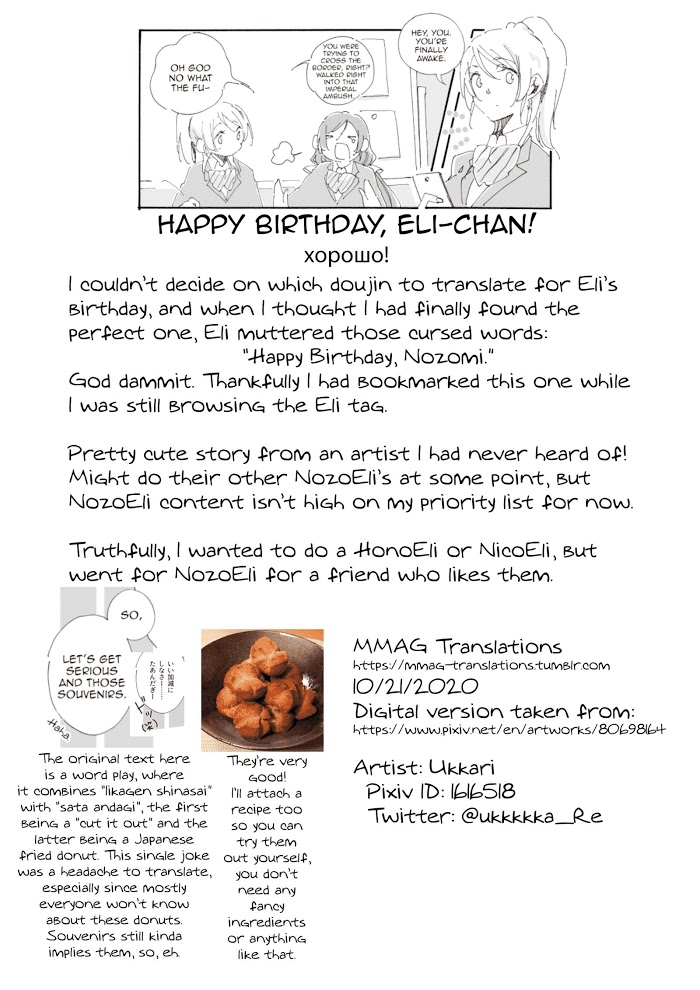 OH GOD
NO WHAT
THE FU-
YOU WERE
TRYING TO
CROSS THE
BORDER, RIGHT?
WALKED RIGHT
INTO THAT
IMPERIAL
AMBUSH.
HEY, YOU.
YOU'RE
FINALLY
AWAKE.
HAPPY BIRTHDAY, ELI-CHAN!
хорошо!
I couldn't decide on which doujin to translate for Eli's
Birthday, and when I thought I had finally found the
perfect one, Eli muttered those cursed words:
"Happy Birthday, Nozomi."
God dammit. Thankfully I had bookmarked this one while
I was still browsing the Eli tag.
Pretty cute story from an artist I had never heard of!
Might do their other NozoEli's at some point, but
NozoEli content isn't high on my priority list for now.
Truthfully, I wanted to do a HonoEli or NicoEli, but
went for NozoEli for a friend who likes them.
SO,
LET'S GET
SERIOUS
AND THOSE
SOUVENIRS.
いい加減に
しなさー……
たあんだぎー
ドッ
(笑)
Haha
The original text here
is a word play, where
it combines "Iikagen shinasai"
with "sata andagi", the first
being a "cut it out" and the
latter being a Japanese
fried donut. This single joke
was a headache to translate,
especially since mostly
everyone won't know
about these donuts.
Souvenirs still kinda
implies them, so, eh.
They're very
good!
I'll attach a
recipe too
so you can
try them
out yourself,
you don't
need any
fancy
ingredients
or anything
like that.
MMAG Translations
https://mmag-translations.tumblr.com
10/21/2020
Digital version taken from:
https://www.pixiv.net/en/artworks/80698164
Artist: Ukkari
Pixiv ID: 1616518
Twitter: @ukkkkka_Re